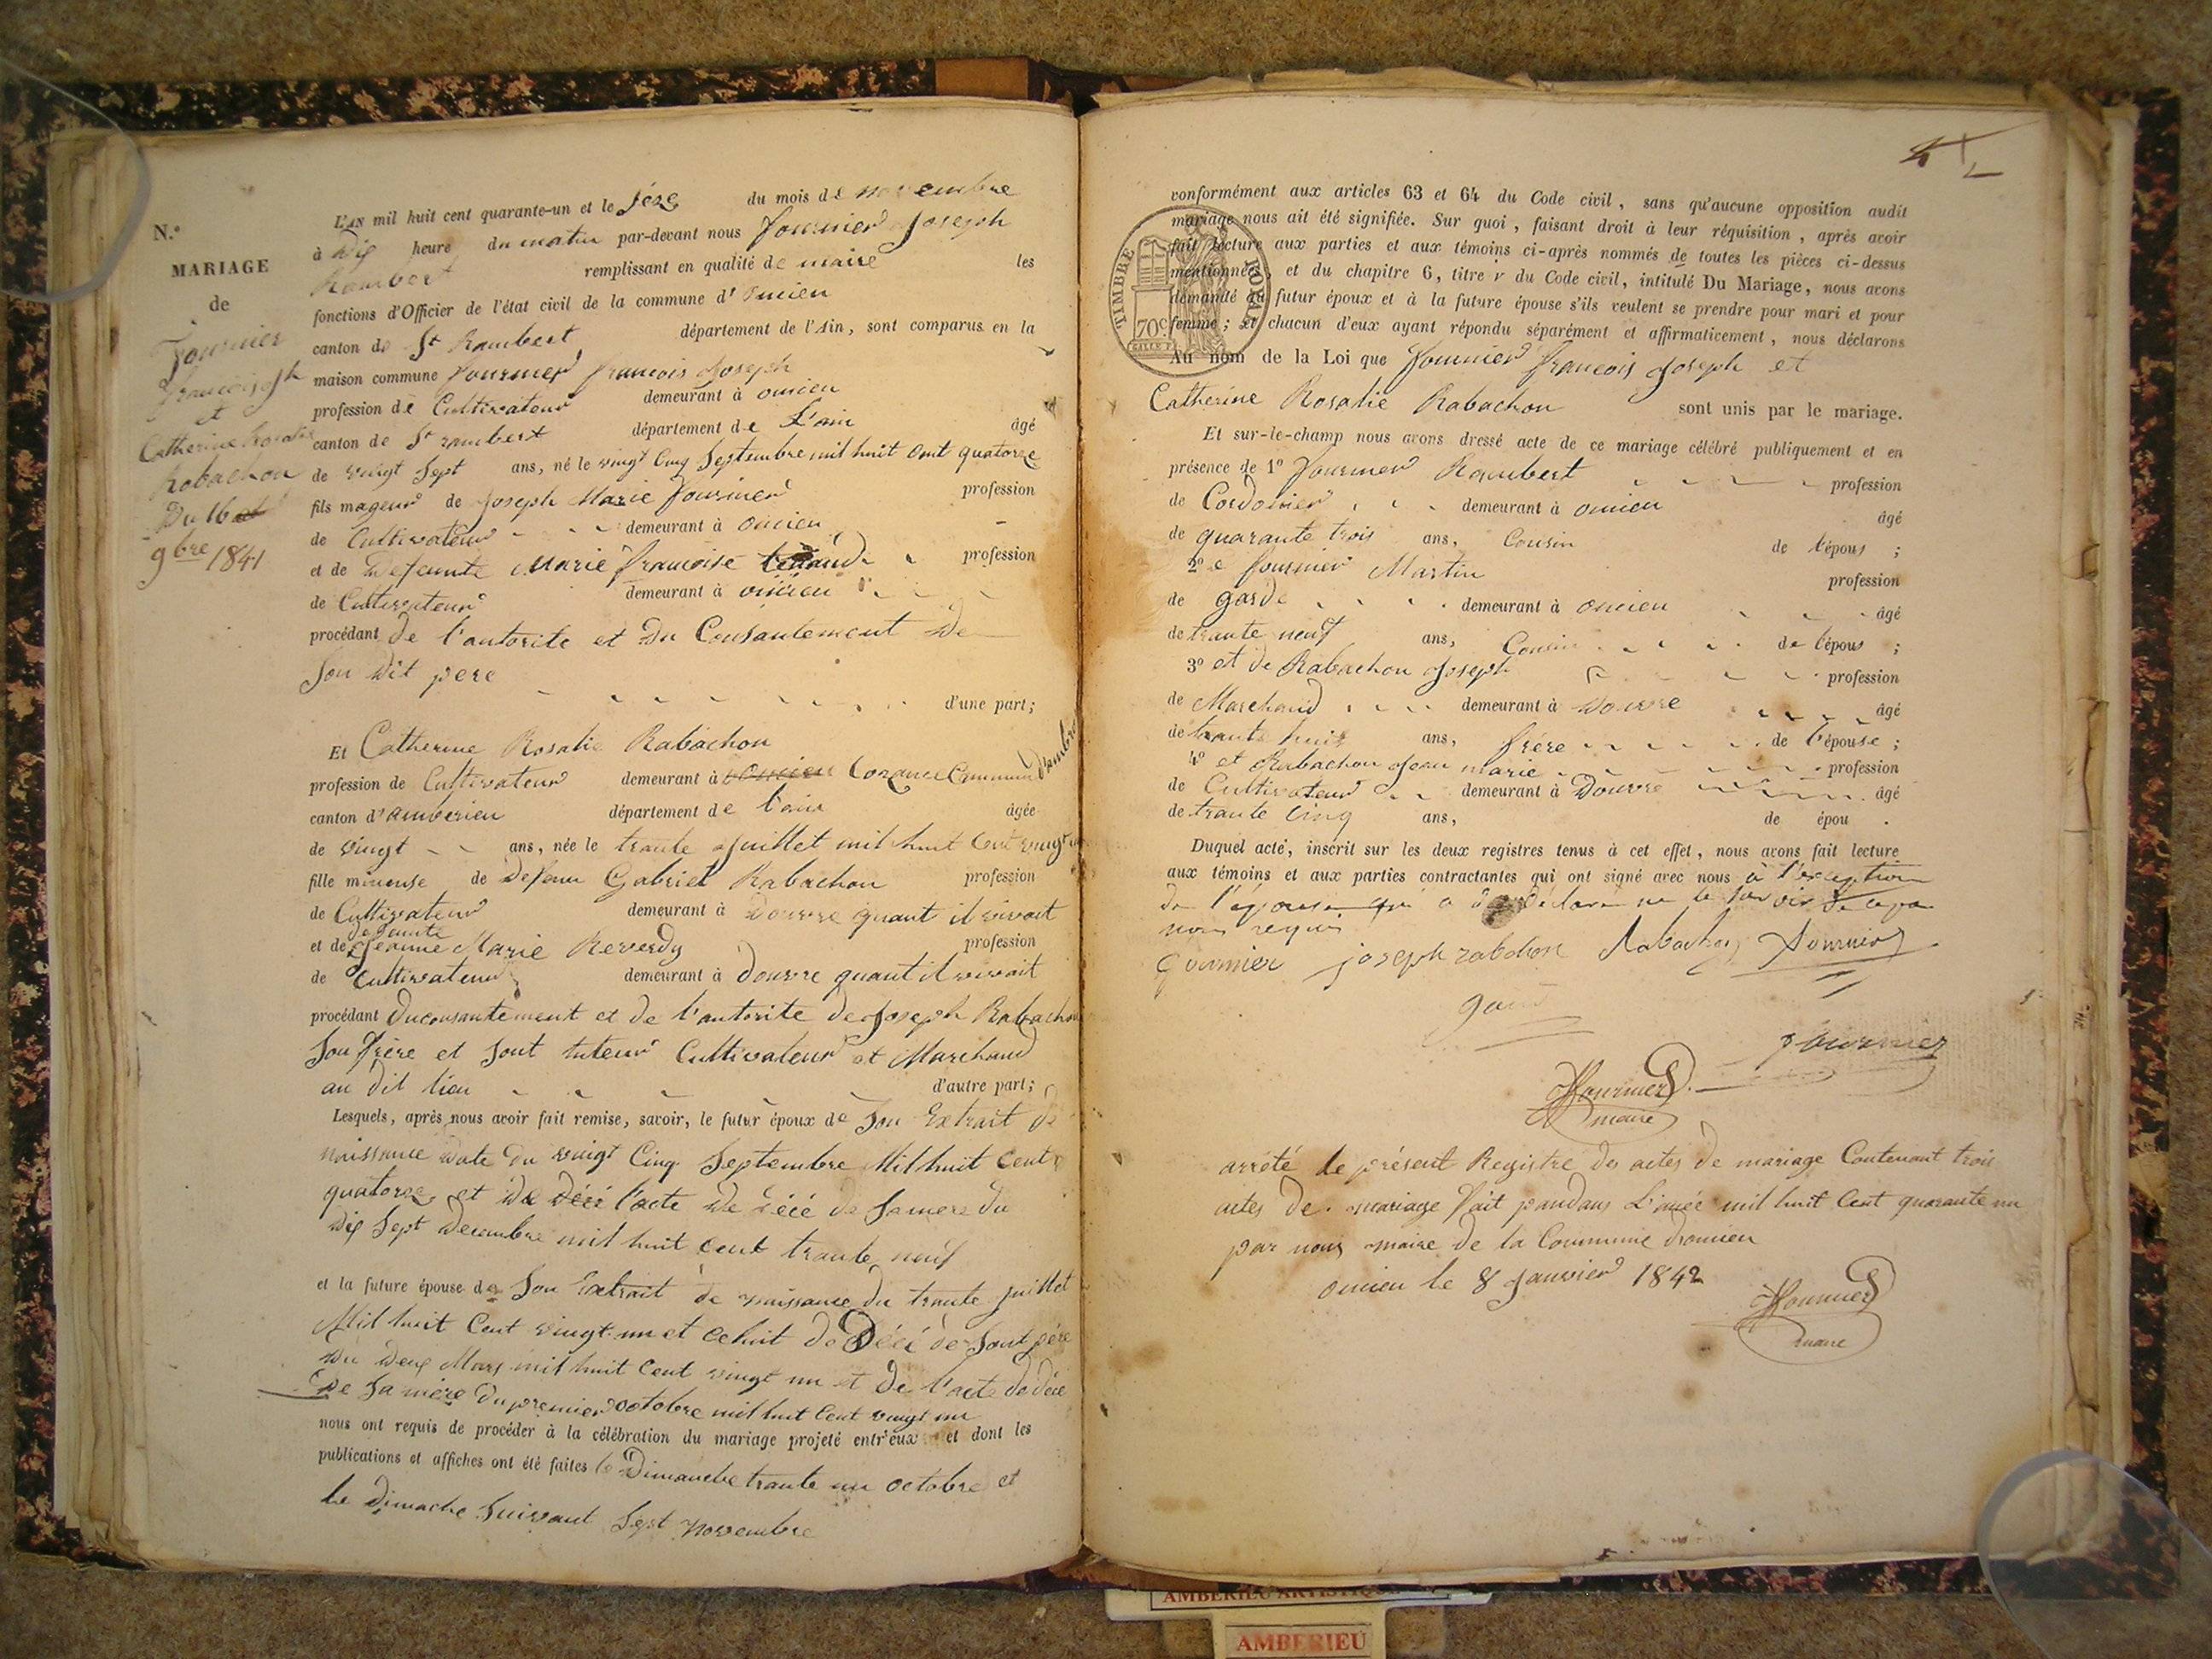 N.°
MARIAGE
de
Fournier
francois jph
et
Catherine Rosalie
Rabachon
Du 16
9bre 1841
L'AN mil huit cent quarante-un et le séze du mois de novembre
à dix heure du matin par-devant nous fournier Joseph
Rambert remplissant en qualité de maire les
fonctions d'Officier de l'état civil de la commune d' oncieu
canton de St Rambert département de l'Ain, sont comparus en la
maison commune fournier francois Joseph
profession de Cultivateur demeurant à oncieu
canton de St rambert département de L'ain âgé
de vingt sept ans, né le vingt Cinq Septembre mil huit Cent quatorze
fils mageur de Joseph Marie fournier profession
de Cultivateur demeurant à oncieu
et de Defeunte Marie francoise profession
de Cultivateur demeurant à oncieu
procédant de l'autorite et du Consantement de
Son dit pere
d'une part;
Et Catherine Rosalie Rabachon
profession de Cultivateur demeurant à oncieu Cozance Commune d'ambérieu
canton d'amberieu département de l'ain âgée
de vingt ans, née le trante Juillet mil huit Cent vingt un
fille mineuse de Defeun Gabriel Rabachon profession
de Cultivateur demeurant à Douvre quant il vivoit
defeunte
et de Jeanne Marie Reverdy profession
de Cultivateur demeurant à Douvre quant il vivoit
procédant du consantement et de l'autorite de Joseph Rabachon
Son frère et Sont tuteur Cultivateur et Marchand
au dit lieu d'autre part;
Lesquels, après nous avoir fait remise, savoir, le futur époux de Son Extrait de
naissance date du vingt Cinq Septembre Mil huit Cent
quatorze et de Décé l'acte de décé de Sa mere du
dix Sept Decembre mil huit Cent trante neuf
et la future épouse de Son Extrait de naissance du trante juillet
Mil huit Cent vingt un et celuit de Décé de Sont pére
du deux Mars mil huit Cent vingt un et de l'acte de déce
De Sa mére du premier octobre mil huit Cent vingt un
nous ont requis de procéder à la célébration du mariage projeté entr'eux et dont les
publications et affiches ont été faites le Dimanche trante un octobre et
le dimache Suivant Sept novembre
conformément aux articles 63 et 64 du Code civil, sans qu'aucune opposition audit
mariage nous ait été signifiée. Sur quoi, faisant droit à leur réquisition, après avoir
fait lecture aux parties et aux témoins ci-après nommés de toutes les pièces ci-dessus
mentionnées, et du chapitre 6, titre v du Code civil, intitulé Du Mariage, nous avons
demandé au futur époux et à la future épouse s'ils veulent se prendre pour mari et pour
femme; et chacun d'eux ayant répondu séparément et affirmativement, nous déclarons
TIMBRE ROYAL
70c
Au nom de la Loi que fournier francois Joseph et
Catherine Rosalie Rabachon sont unis par le mariage.
Et sur-le-champ nous avons dressé acte de ce mariage célébré publiquement et en
présence de 1° fournier Rambert profession
de Cordonier demeurant à oncieu âgé
de quarante trois ans, Cousin de l'épous ;
2° e fournier Martin profession
de garde demeurant à oncieu âgé
de trante neuf ans, Cousin de l'épous ;
3° et de Rabachon Joseph profession
de Marchand demeurant à Douvre âgé
de trante huit ans, frére de l'épouse ;
4° et Rabachon Jean marie profession
de Cultivateur demeurant à Douvre âgé
de trante Cinq ans, de épou .
Duquel acte, inscrit sur les deux registres tenus à cet effet, nous avons fait lecture
aux témoins et aux parties contractantes qui ont signé avec nous à l'exception
de l'épouse qui a déclaré ne le savoir de ce par
nous requis
fournier joseph rabachon Rabachon fournier
garde
fournier
Fournier
maire
arrété le présent Registre des actes de mariage Contenant trois
actes de mariage fait pandans L'anée mil huit Cent quarante un
par nous maire de la Commune d'oncieu
oncieu le 8 Janvier 1842
Fournier
maire
AMBERIEU ARTISTIQUE
AMBERIEU